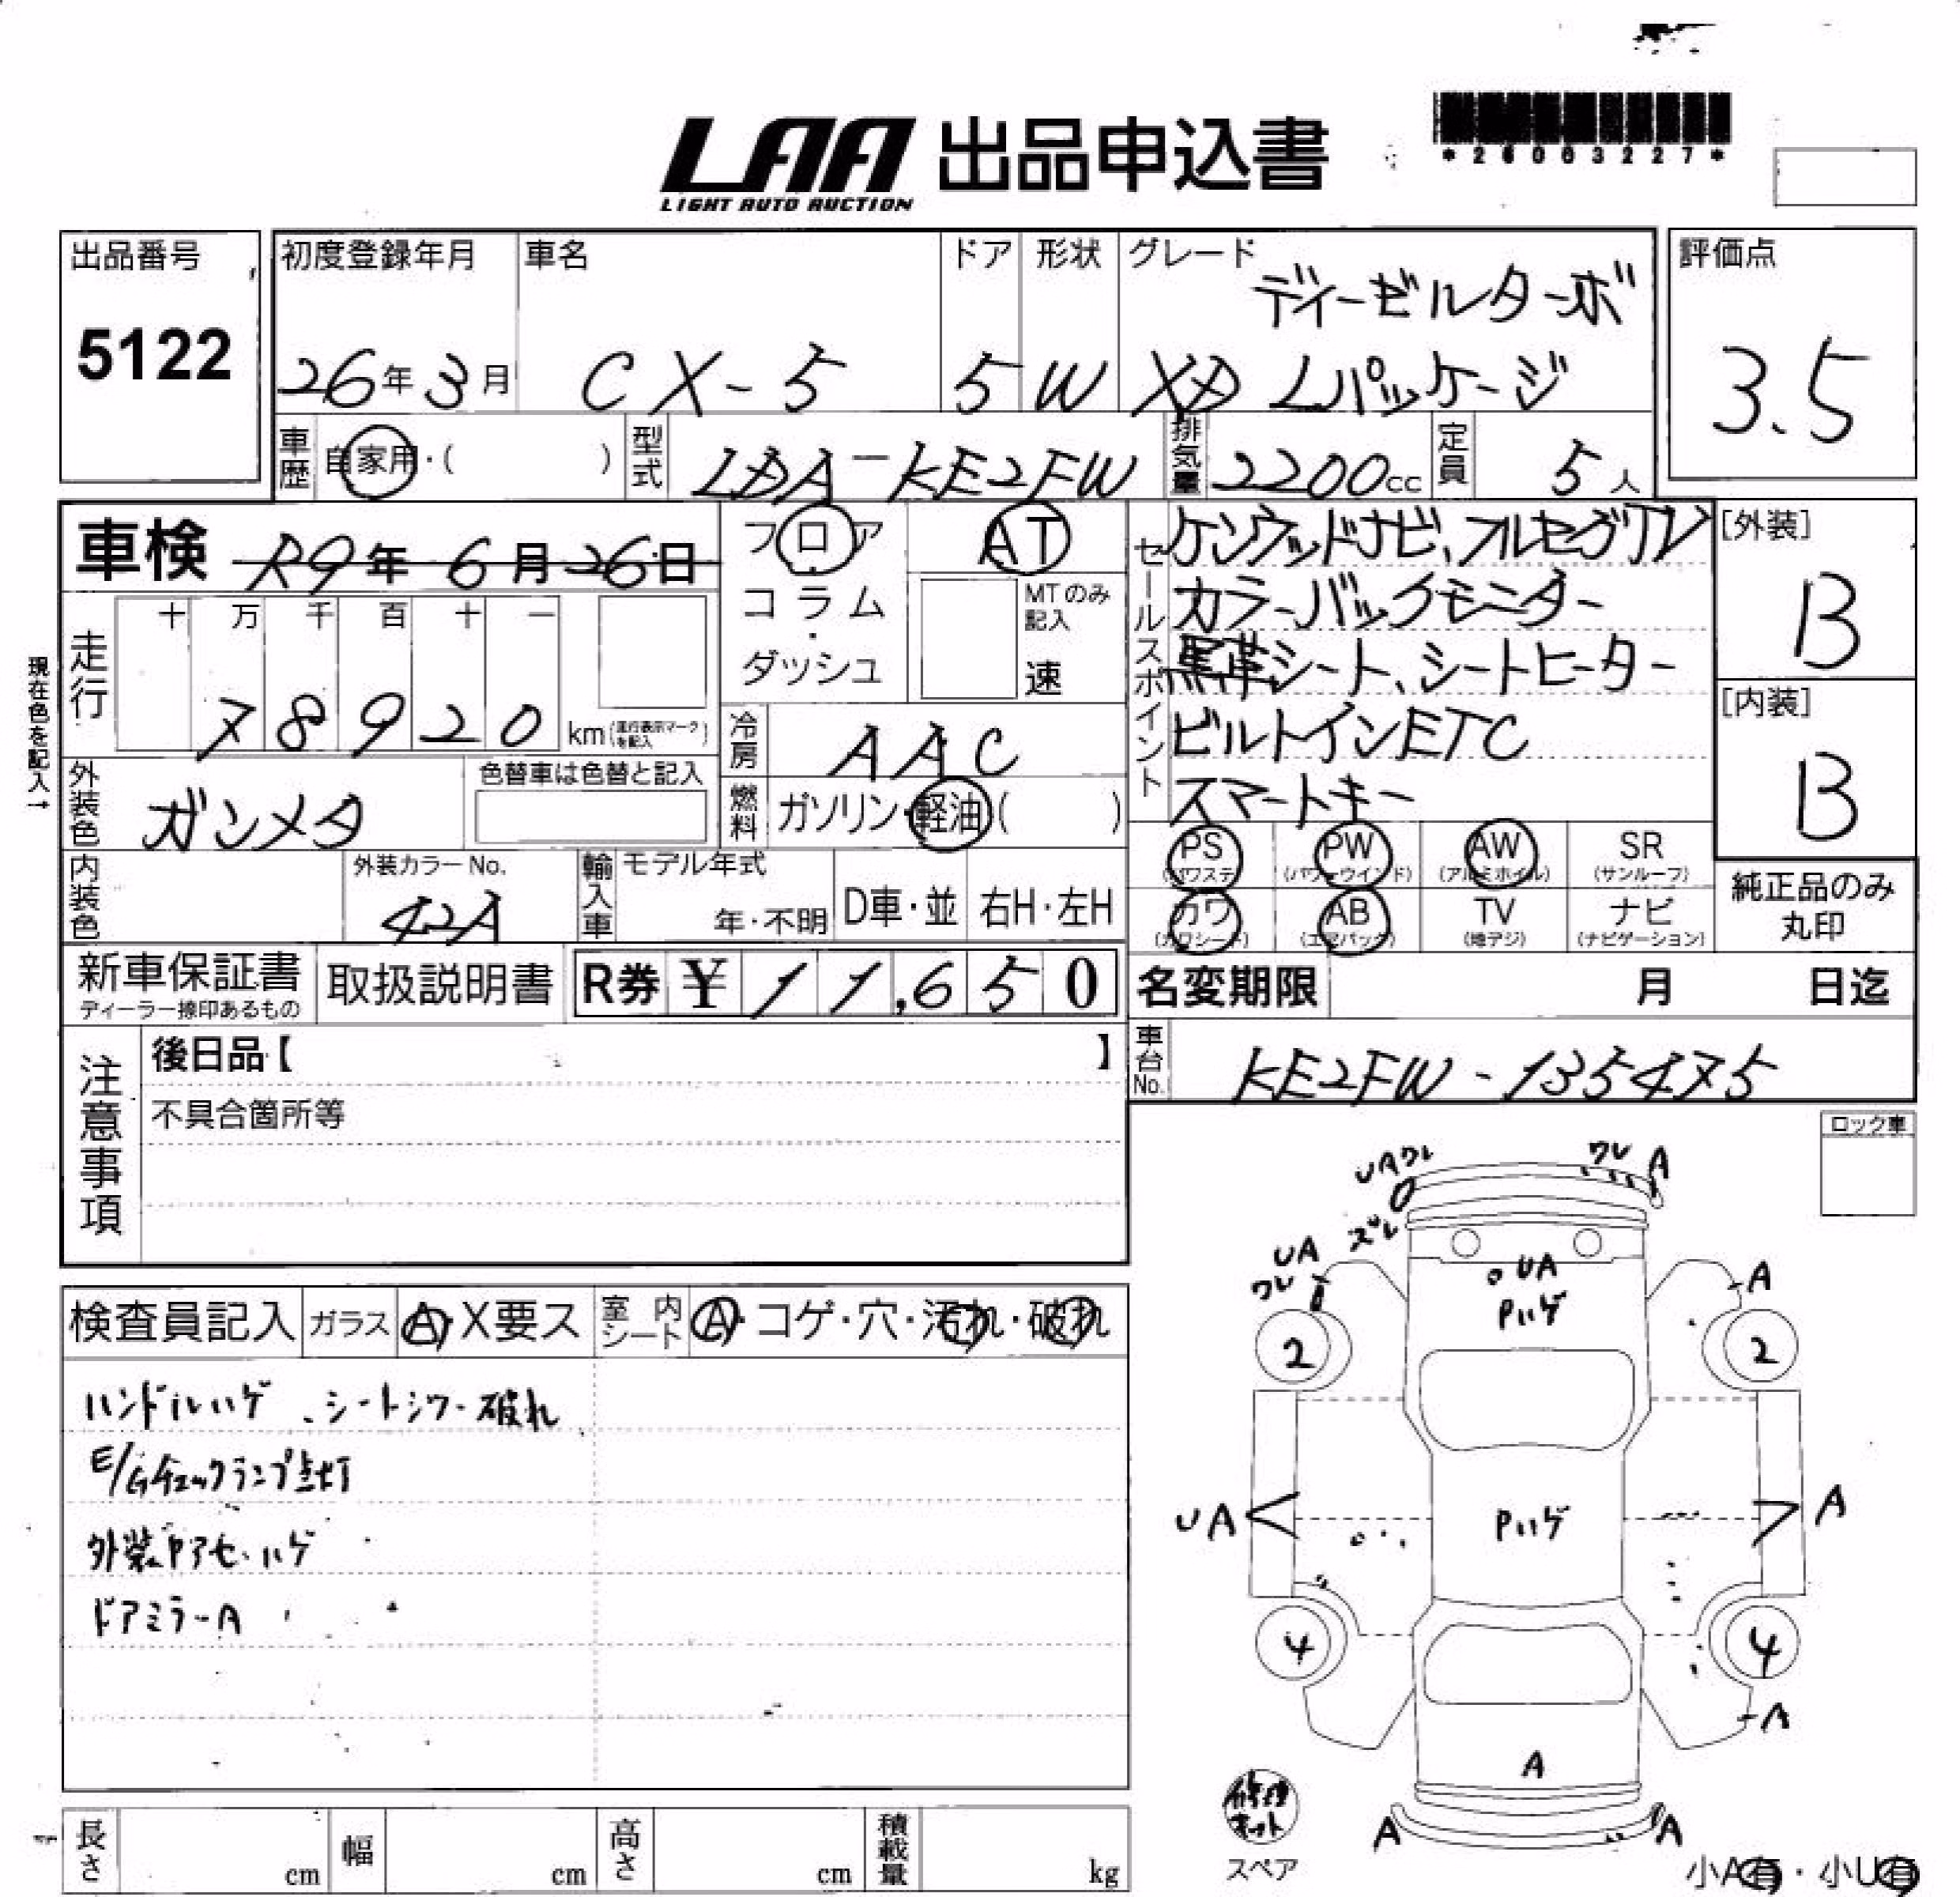 LAA 出品申込書
LIGHT AUTO AUCTION
*26003227*
出品番号
5122
初度登録年月
26年3月
車名
CX-5
ドア
5
形状
W
グレード
ディーゼルターボ
XD Lパッケージ
評価点
3.5
車歴
自家用・( )
型式
LDA-KE2FW
排気量
2200cc
定員
5人
車検 R9年6月26日
フロア
・
コラム
・
ダッシュ
AT
MTのみ記入
速
セールスポイント
ケンウッドナビ、フルセグTV
カラーバックモニター
黒革シート、シートヒーター
ビルトインETC
スマートキー
[外装]
B
[内装]
B
現在色を記入→
走行
十 万 千 百 十 一
7 8 9 2 0
km(走行表示マークを記入 )
冷房
AAC
外装色
ガンメタ
色替車は色替と記入
燃料
ガソリン・軽油( )
PS
(パワステ)
PW
(パワーウインド)
AW
(アルミホイル)
SR
(サンルーフ)
カワ
(カワシート)
AB
(エアバック)
TV
(地デジ)
ナビ
(ナビゲーション)
純正品のみ
丸印
内装色
外装カラーNo.
42A
輸入車
モデル年式
年・不明
D車・並
右H・左H
新車保証書
ディーラー捺印あるもの
取扱説明書
R券 ¥11,650
名変期限 月 日迄
注意事項
後日品【 】
不具合箇所等
車台No.
KE2FW-135475
ロック車
検査員記入
ガラス
A・X要ス
室内シート
A・コゲ・穴・汚れ・破れ
ハンドルハゲ、シートシワ・破れ
E/Gチェックランプ点灯
外装Pアセ・ハゲ
ドアミラーA
UAワレ
ワレ A
ズレ
UA
ワレ
UA
Pハゲ
A
2
2
UA
Pハゲ
A
4
4
A
A
A
A
修理キット
スペア
小A有・小U有
長さ cm
幅 cm
高さ cm
積載量 kg